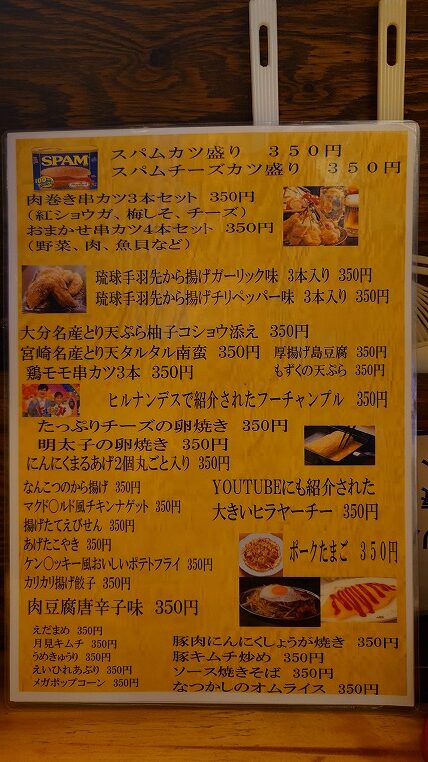 SPAM
スパムカツ盛り 350円
スパムチーズカツ盛り 350円
肉巻き串カツ3本セット 350円
(紅ショウガ、梅しそ、チーズ)
おまかせ串カツ4本セット 350円
(野菜、肉、魚貝など)
琉球手羽先から揚げガーリック味 3本入り 350円
琉球手羽先から揚げチリペッパー味 3本入り 350円
大分名産とり天ぷら柚子コショウ添え 350円
宮崎名産とり天タルタル南蛮 350円
厚揚げ島豆腐 350円
鶏モモ串カツ3本 350円
もずくの天ぷら 350円
ヒルナンデスで紹介されたフーチャンプル 350円
たっぷりチーズの卵焼き 350円
明太子の卵焼き 350円
にんにくまるあげ2個丸ごと入り 350円
なんこつのから揚げ 350円
マクド〇ルド風チキンナゲット 350円
揚げたてえびせん 350円
あげたこやき 350円
ケン〇ッキー風おいしいポテトフライ 350円
カリカリ揚げ餃子 350円
肉豆腐唐辛子味 350円
YOUTUBEにも紹介された
大きいヒラヤーチー 350円
ポークたまご 350円
えだまめ 350円
月見キムチ 350円
うめきゅうり 350円
えいひれあぶり 350円
メガポップコーン 350円
豚肉にんにくしょうが焼き 350円
豚キムチ炒め 350円
ソース焼きそば 350円
なつかしのオムライス 350円